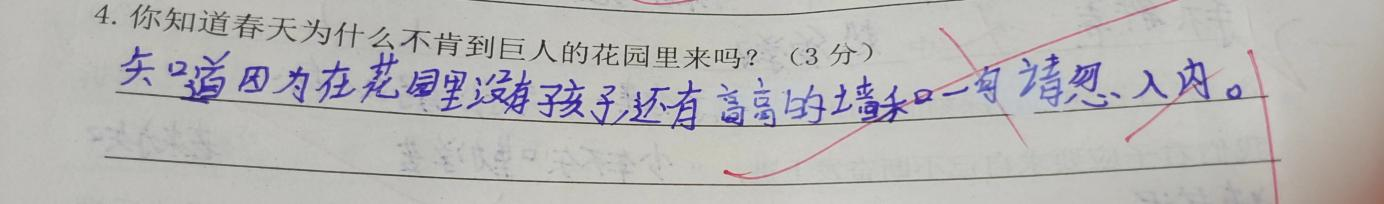 4. 你知道春天为什么不肯到巨人的花园里来吗？（3 分）
知道因为在花园里没有孩子,还有高高的土墙和一句请忽入内。